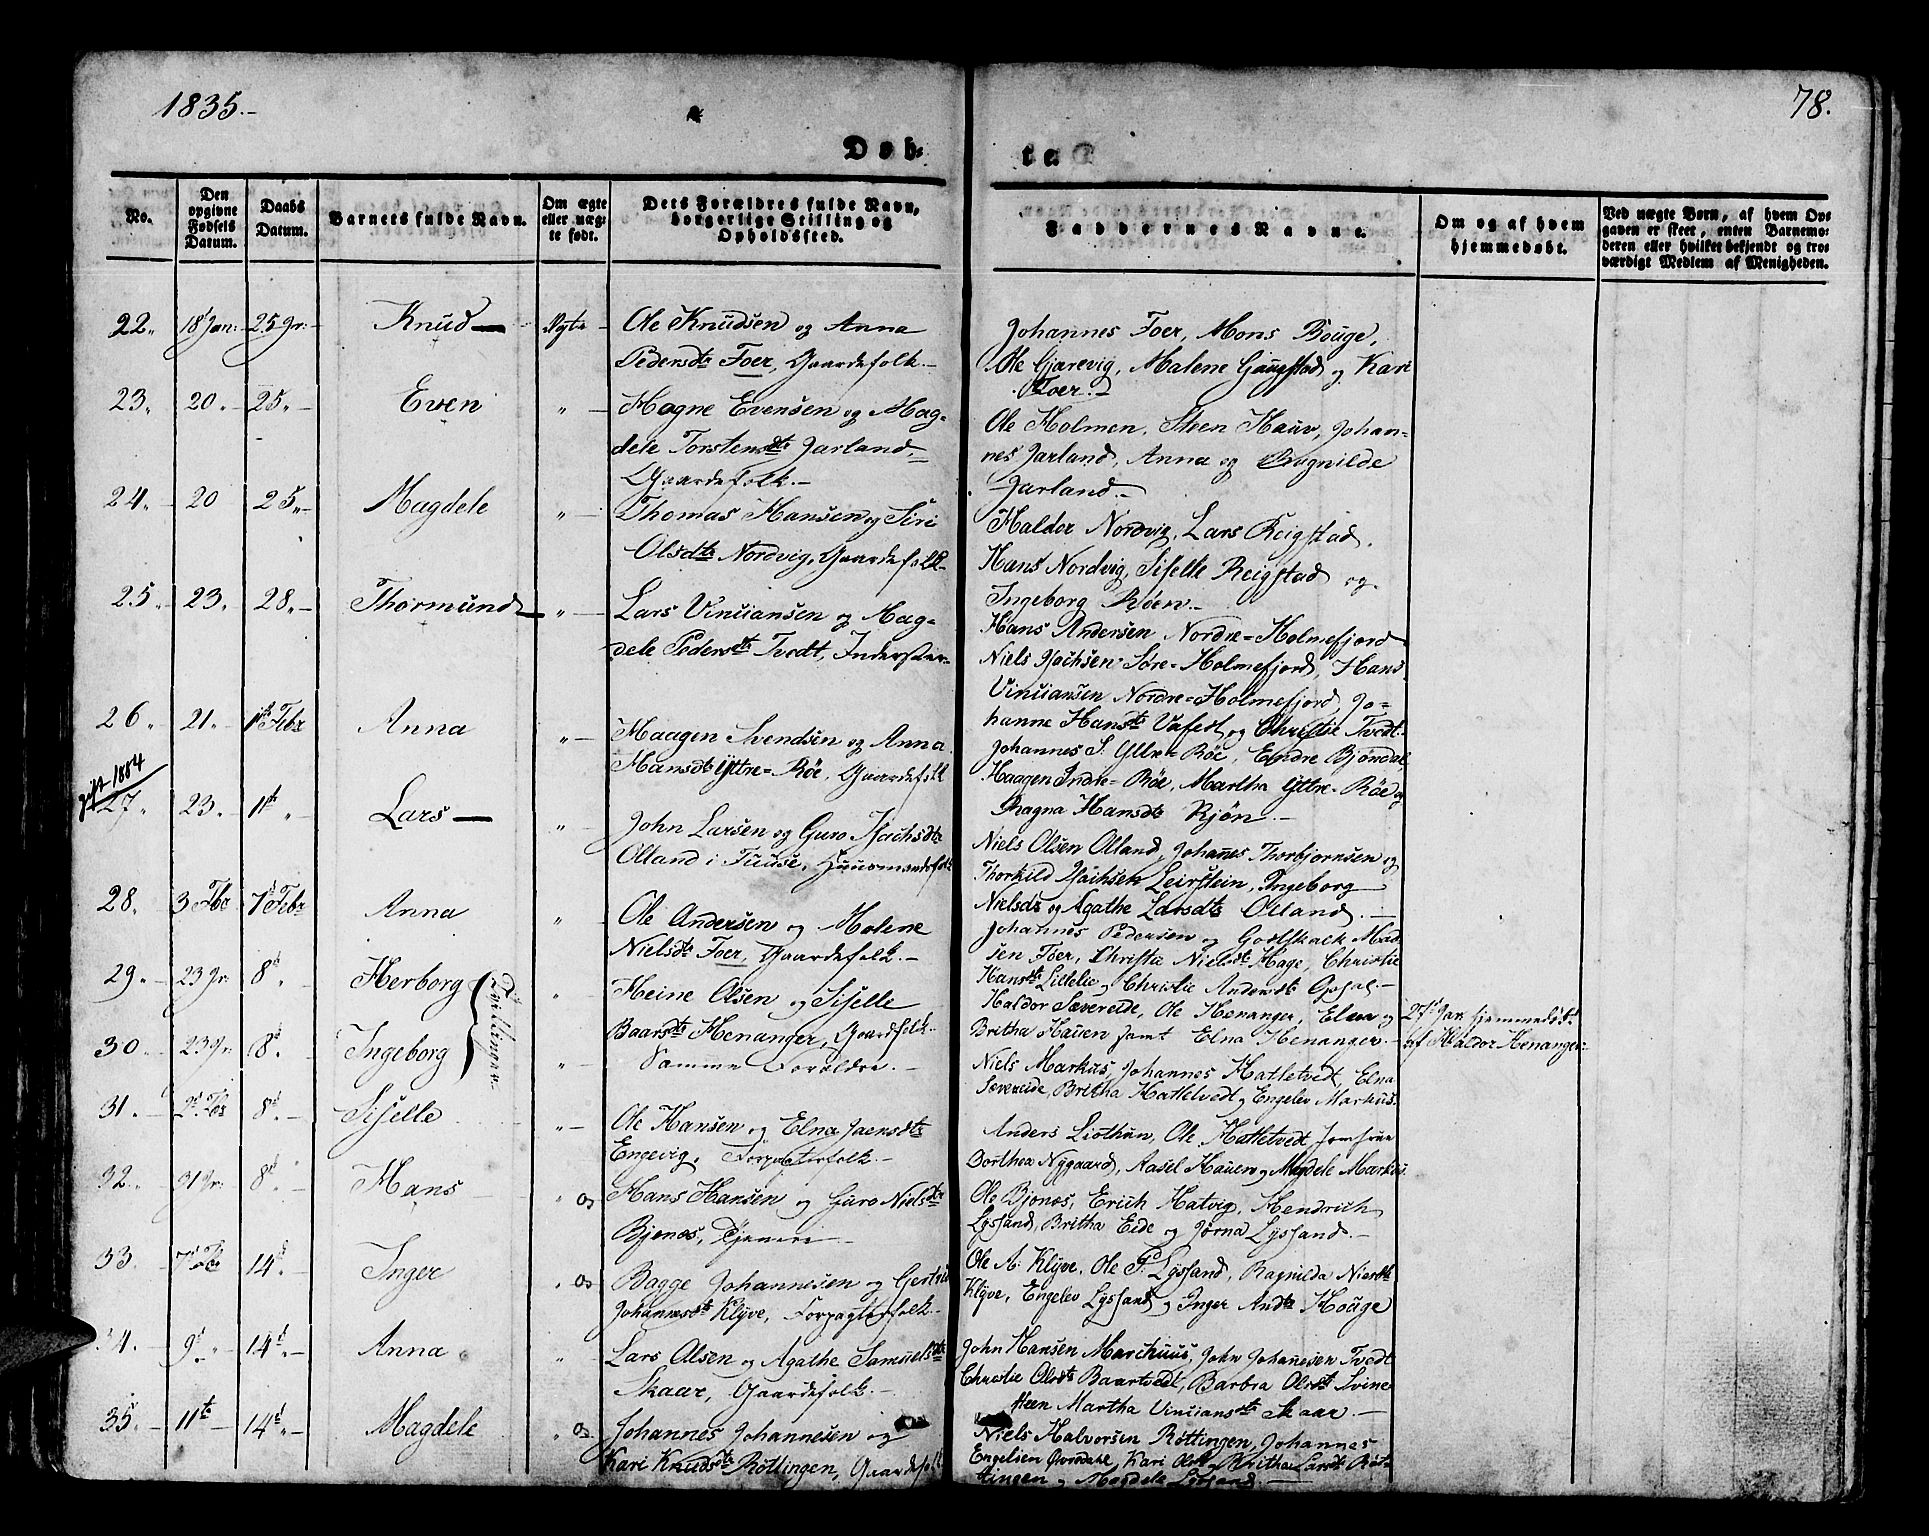 1835.-
78.
Døb-
te
No.
Den opgivne Fødsels Datum.
Daabs Datum.
Barnets fulde Navn.
Om ægte eller uægte født.
Dets Forældres fulde Navn, borgerlige Stilling og Opholdssted.
Faddernes Navne.
Om og af hvem hjemmedøbt.
Ved uægte Børn, af hvem Opgaven er skeet, enten Barnemoderen eller hvilket bekjendt og troværdigt Medlem af Menigheden.
22. 18 Jan: 25 Jr:- Knud- Ægte- Ole Knudsen og Anna
Pedersdtr Foer, Gaardefolk.-
Johannes Foer, Mons Bouge,
Ole Gjærevig, Malene Gaugstad og Kari
Foer.-
23. 20.- 25.- Even " - Mogne Evensen og Mag-
dele Torstensdtr Jarland,
Gaardefolk.-
Ole Holmen, Steen Hauv, Johan-
nes Jarland, Anna og Ragnilde
Jarland.-
24.- 20 25.- Magdele " - Thomas Hansen og Siri
Olsdtr Nordvig, Gaardefolk-
Haldor Nordvig, Lars Reigstad,
Hans Nordvig, Siselle Reigstad og
Ingeborg Røen.-
25.- 23. 28.- Thormund - " - Lars Vinciansen og Mag-
dele Pedersdtr Tvedt, Inderster-
Hans Andersen Nordre-Holmefjord
Niels Isachsen Søre-Holmefjord, Hans
Vinciansen Nordre-Holmefjord, Jo-
hanne Hansdtr Vafest og Christie Tvedt.
26. 21.- 1st Febr Anna "- Haagen Svendsen og Anna
Hansdtr Yttre-Røe, Gaardefolk
Johannes S. Yttre Røe, Endre Bjøndal,
Haagen Indre-Røe, Martha Yttre-Røe og
Ragna Hansdtr Rjøn.-
gift 1884
27. 23. 1st " Lars - " - John Larsen og Guro Isachsdtr
Olland i Fuuse, Huusmandsfolk
Niels Olsen Olland, Johannes Thorbjørnsen og
Thorkild Isachsen Leirstein, Ingeborg
Nielsdtr og Agathe Larsdtr Olland.-
28. 3 Febr 7 Febr Anna " - Ole Andersen og Malene
Nielsdtr Foer, Gaardefolk.-
Johannes Pedersen og Godskalk Mad
sen Foer, Christa Nielsdtr Hage, Christie
Hansdtr Lillelie og Christie Andersdtr
29. 23 Jr: 8d. Herborg Tvillinger.- Heine Olsen og Siselle
Baarsdtr Henanger, Gaardfolk.
Haldor Sævereide, Ole Henanger, Elen og
Britha Hauen samt Elna Henanger.-
27d Jan hjemmedøbt
af Haldor Henanger.
30. 23 Jr 8d. Ingeborg "- Samme Forældre.-
Niels Markus, Johannes Hatletvedt, Elna
Sævereide, Britha Hatletvedt og Engelev Markus.
31. 2d Febr 8d.- Siselle "- Ole Hansen og Elna Jaensdtr
Engevig, Forpagterfolk.-
Anders Liothun, Ole Hatletvedt Jomfrue
Dorthea Nygaard, Aasel Hauen og Magdele Markus.
32. 31 Jr: 8d " Hans " Os Hans Hansen og Guro Nielsdtr
Bjønes, Tjenere-
Ole Bjønes, Erich Hatvig, Hendrich
Lysfand, Britha Eide og Jorna Lysfand.-
33. 7d Febr 14d. Inger " Os Bagge Johannesen og Gertrud
Johannesdtr Klyve, Forpagterfolk.
Ole A: Klyve, Ole P. Lysfand, Ragnilda Nielsdtr
Klyve, Engelev Lysfand og Inger Andtr Houge
34. 9d " 14d.- Anna " Lars Olsen og Agathe Samuelsdtr
Skaar, Gaardefolk.-
John Hansen Marchuus, John Johannesen Tvedt
Christie Olsdtr Baartvedt, Barbra Olsdtr Svine
Heen Martha Vinciansdtr Skaar.-
35.- 11te 14d.- Magdele " Os- Johannes Johannesen og
Kari Knudsdtr Røttingen, Gaardefolk
Niels Halvorsen Røttingen, Johannes
Engelsen Øvredahl, Kari Ols og Britha Larsdtr Røt-
tingen og Magdele Lysfand.-